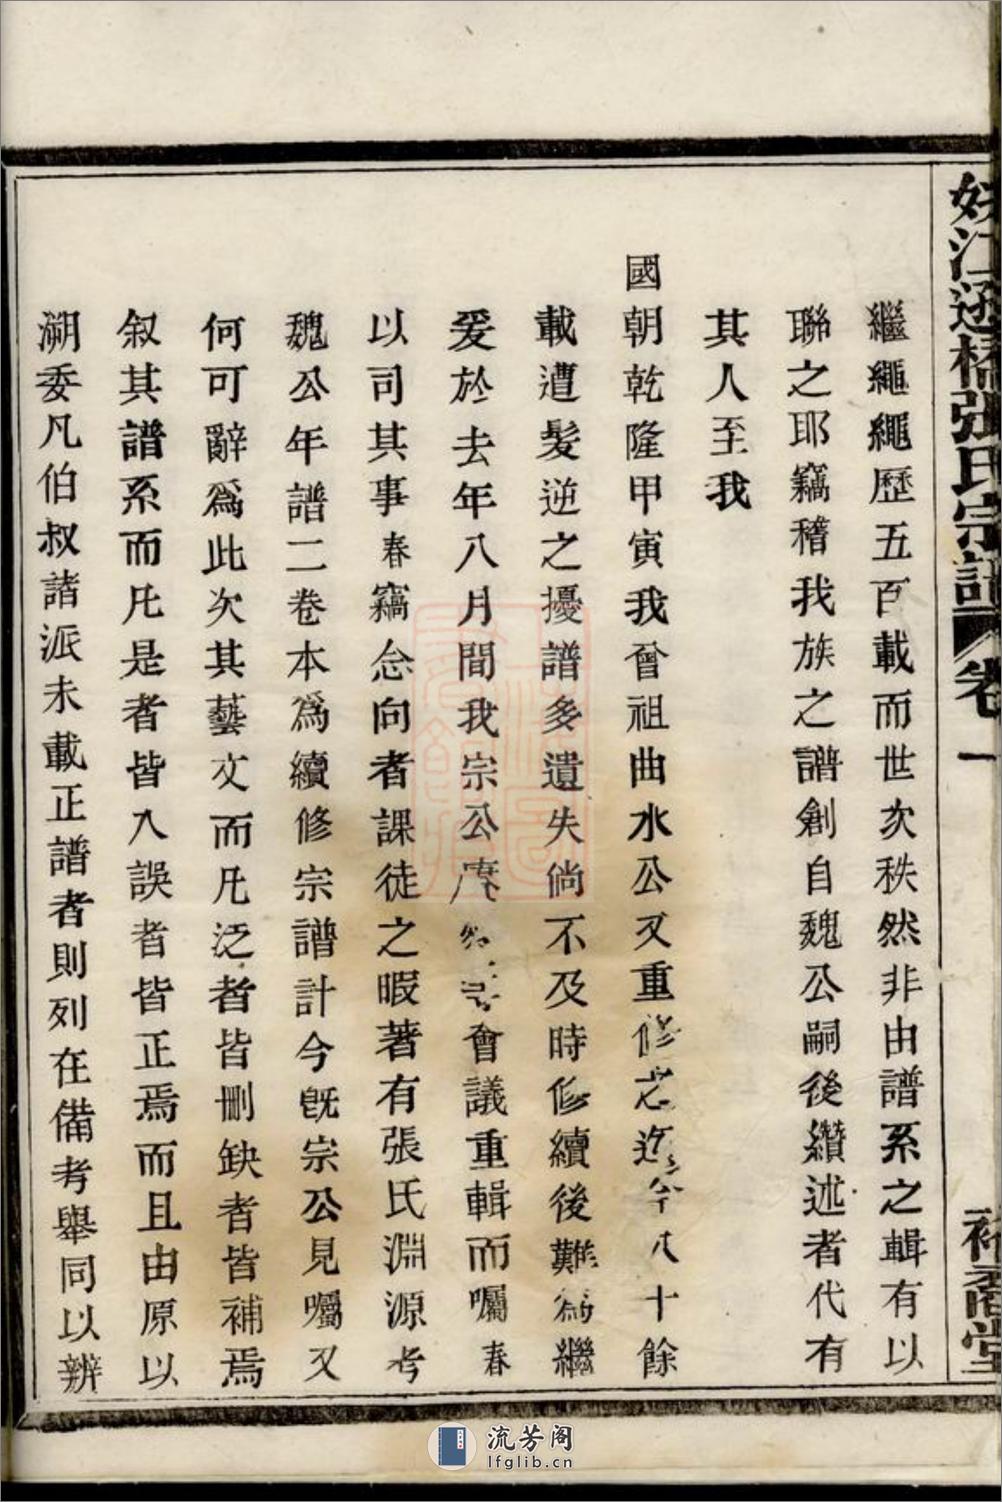 江 橋張氏宗譜 卷一
繼繩繩歷五百載而世次秩然非由譜系之輯有以
聯之耶竊稽我族之譜創自魏公嗣後纘述者代有
其人至我
國朝乾隆甲寅我曾祖曲水公又重修之迄今八十餘
載遭髮逆之擾譜多遺失倘不及時修續後難為繼
爰於去年八月間我宗公 會議重輯而囑春
以司其事春竊念向者課徒之暇著有張氏淵源考
魏公年譜二卷本為續修宗譜計今既宗公見囑又
何可辭為此次其藝文而凡泛者皆刪缺者皆補焉
叙其譜系而凡是者皆入誤者皆正焉而且由原以
溯委凡伯叔諸派未載正譜者則列在備考舉同以辨
堂
流芳阁
lfglib.cn